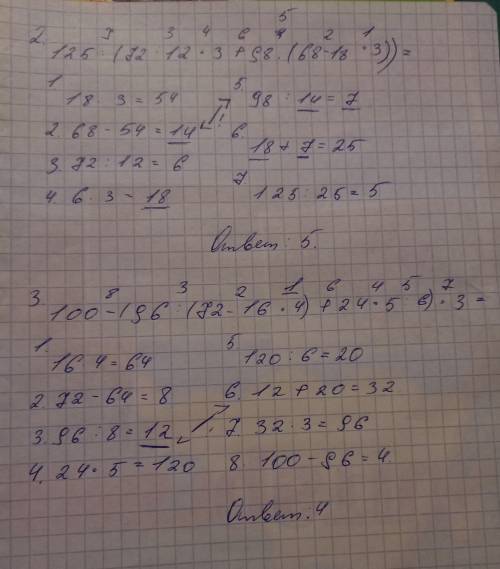 5
7 3 4 6 2 1
2. 125 : (72 : 12 · 3 + 98 : (68 - 18 · 3)) =
1 18 · 3 = 54
5. 98 : 14 = 7
2. 68 - 54 = 14
6. 18 + 7 = 25
3. 72 : 12 = 6
7 125 : 25 = 5
4. 6 · 3 - 18
Ответ: 5.
8 3 2 1 6 4 5 7
3. 100 - (96 : (72 - 16 · 4) + 24 · 5 : 6) · 3 =
1. 16 · 4 = 64
5 120 : 6 = 20
2. 72 - 64 = 8
6. 12 + 20 = 32
3. 96 : 8 = 12
7. 32 · 3 = 96
4. 24 · 5 = 120
8. 100 - 96 = 4.
Ответ: 4